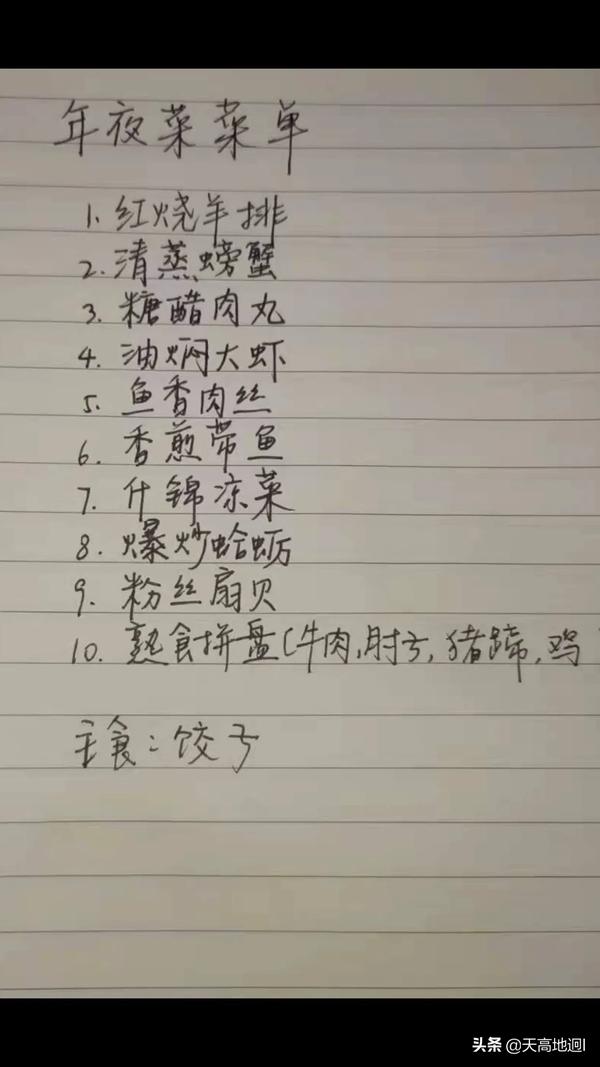 年夜菜菜单
1. 红烧羊排
2. 清蒸螃蟹
3. 糖醋肉丸
4. 油焖大虾
5. 鱼香肉丝
6. 香煎带鱼
7. 什锦凉菜
8. 爆炒蛤蛎
9. 粉丝扇贝
10. 熟食拼盘(牛肉,肘子,猪蹄,鸡
主食:饺子
头条 @天高地迥I